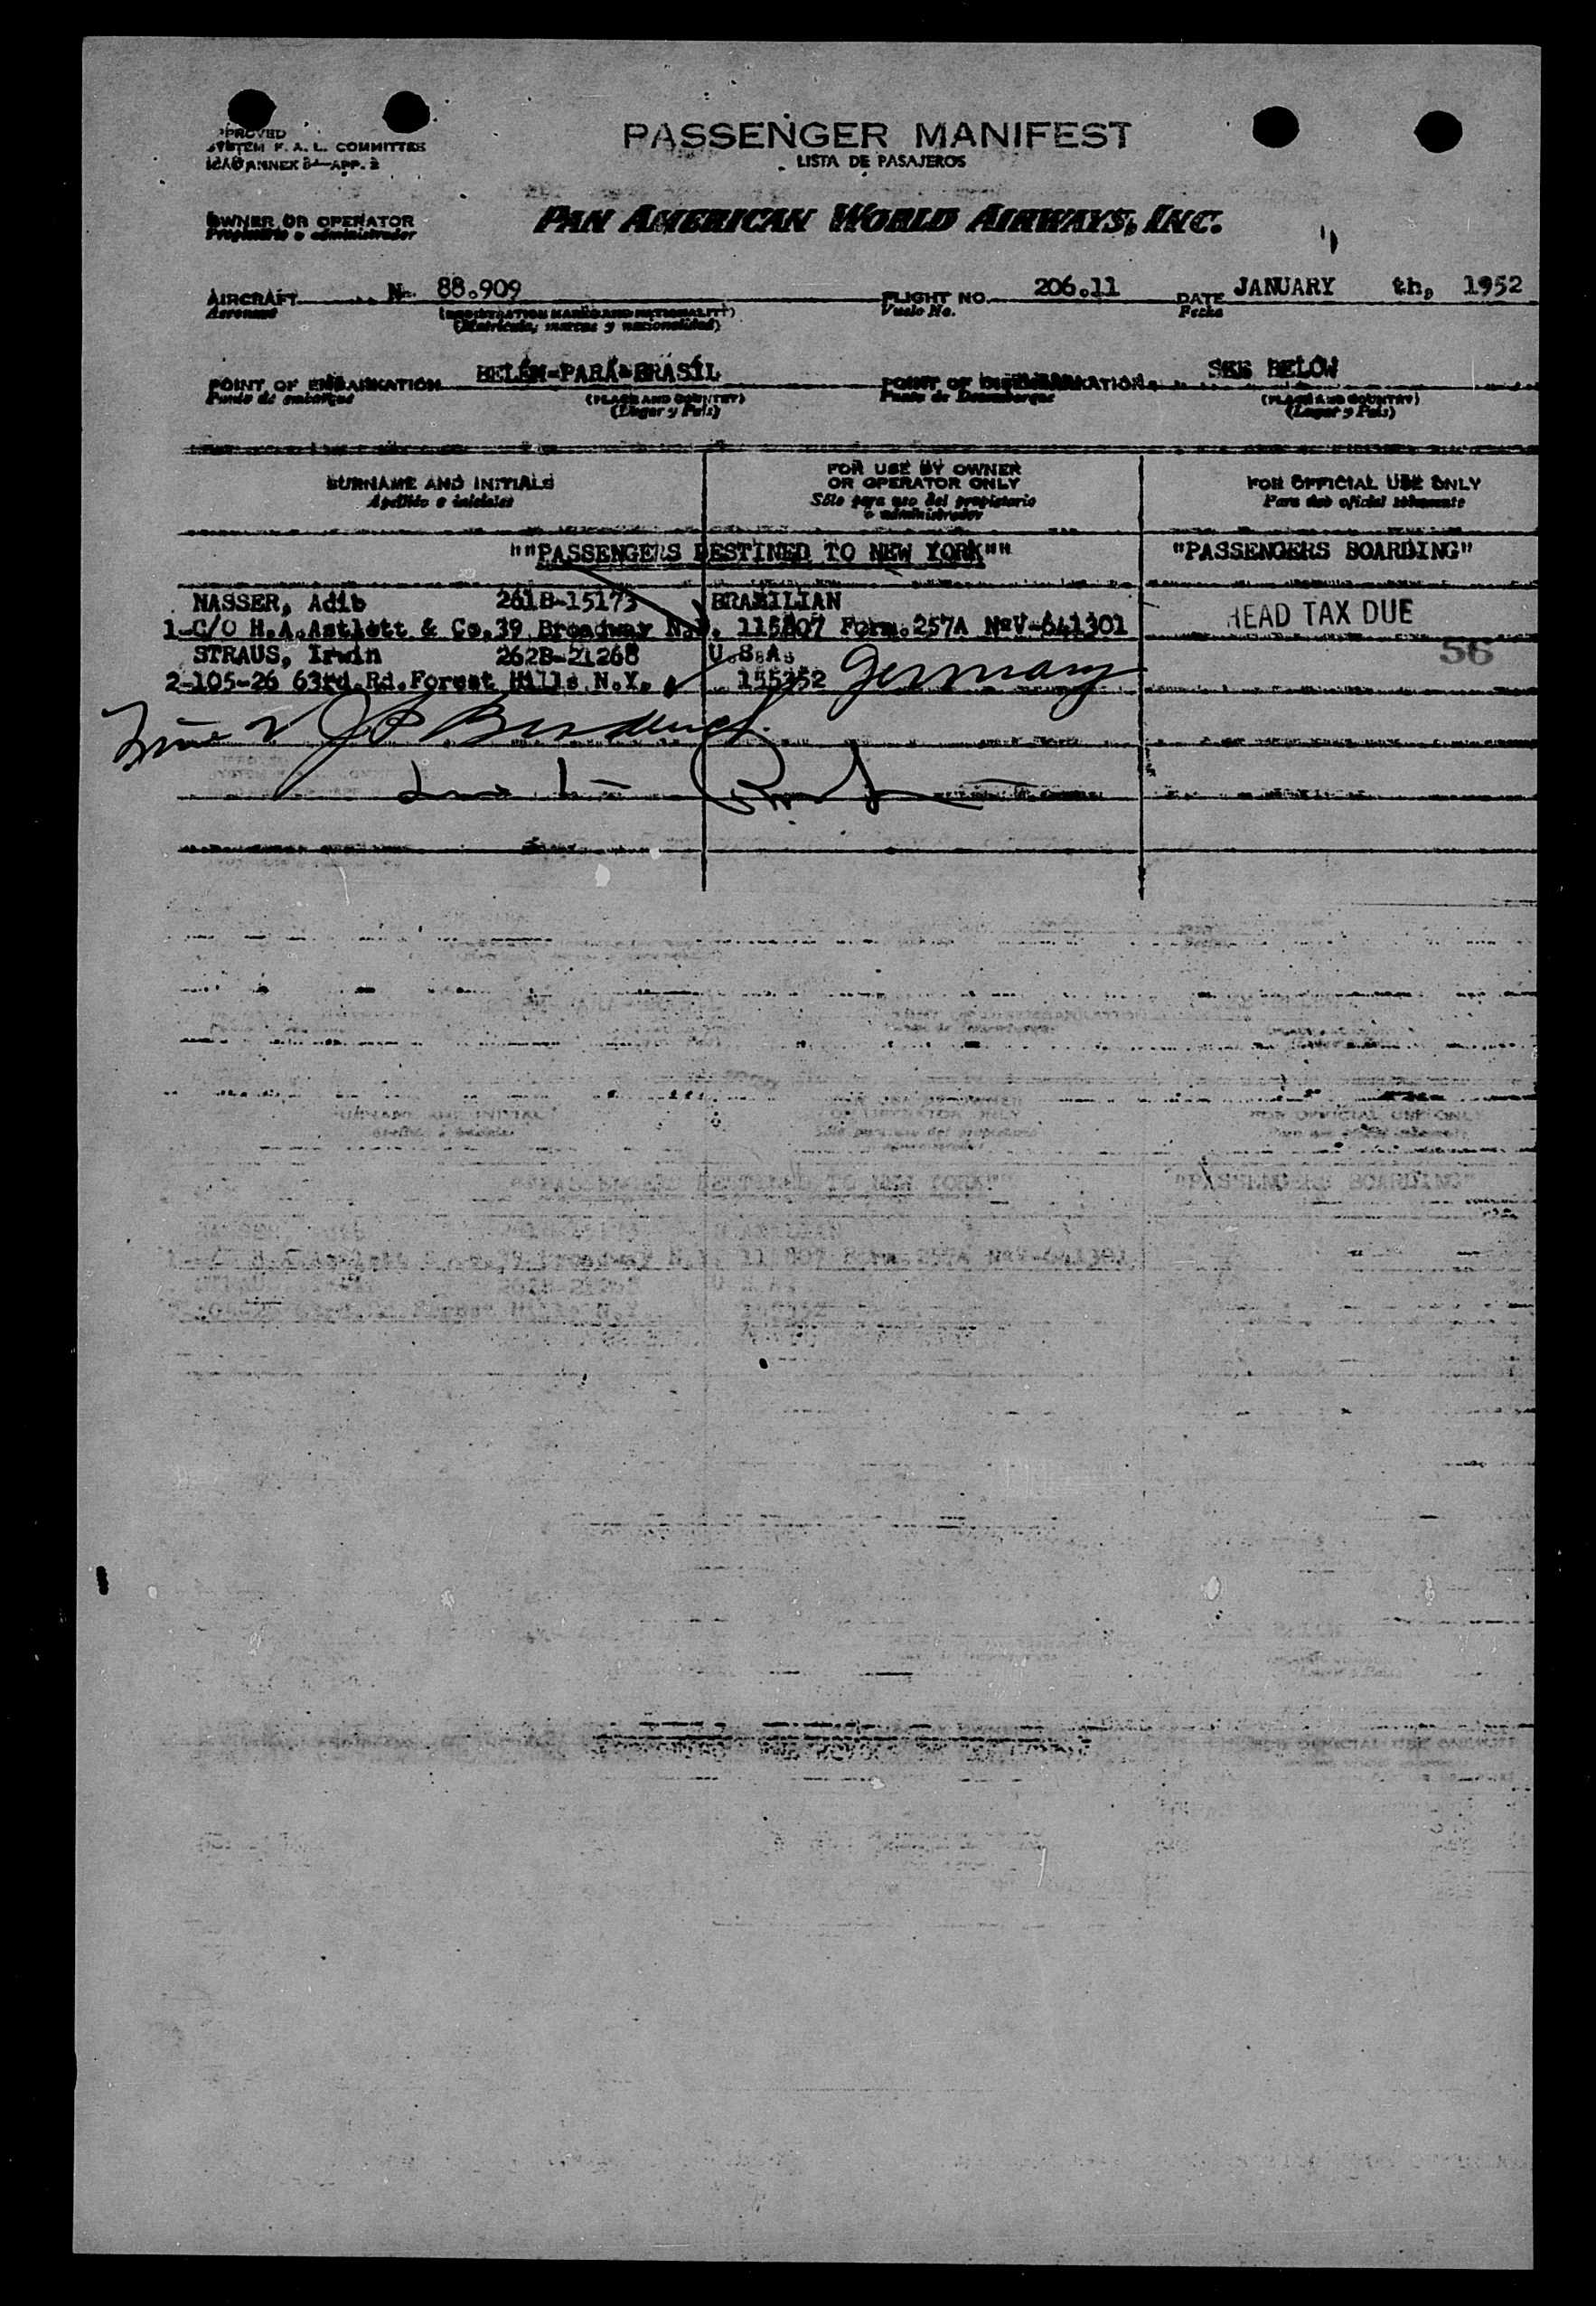 APPROVED
SYSTEM F. A. L. COMMITTEE
ICAO ANNEX 9—APP. 2
PASSENGER MANIFEST
LISTA DE PASAJEROS
OWNER OR OPERATOR
Propietario o administrador
PAN AMERICAN WORLD AIRWAYS, INC.
AIRCRAFT N. 88.909 FLIGHT NO. 206.11 DATE JANUARY th, 1952
Aeronave (REGISTRATION MARKS AND NATIONALITY) Vuelo No. Fecha
(Matrícula, marcas y nacionalidad)
POINT OF EMBARKATION BELÉM-PARÁ-BRASIL POINT OF DISEMBARKATION SEE BELOW
Punto de embarque (PLACE AND COUNTRY) Punto de Desembarque (PLACE AND COUNTRY)
(Lugar y País) (Lugar y País)
SURNAME AND INITIALS FOR USE BY OWNER OR OPERATOR ONLY FOR OFFICIAL USE ONLY
Apellido e iniciales Sólo para uso del propietario o administrador Para uso oficial solamente
""PASSENGERS DESTINED TO NEW YORK"" "PASSENGERS BOARDING"
NASSER, Adib 261B-15173 BRAZILIAN
1-C/O H.A.Astlett & Co.39 Broadway N.Y. 115807 Form.257A NºV-641301 HEAD TAX DUE
STRAUS, Irwin 262B-21268 U.S.A. 56
2-105-26 63rd.Rd.Forest Hills N.Y. 155352 Germany